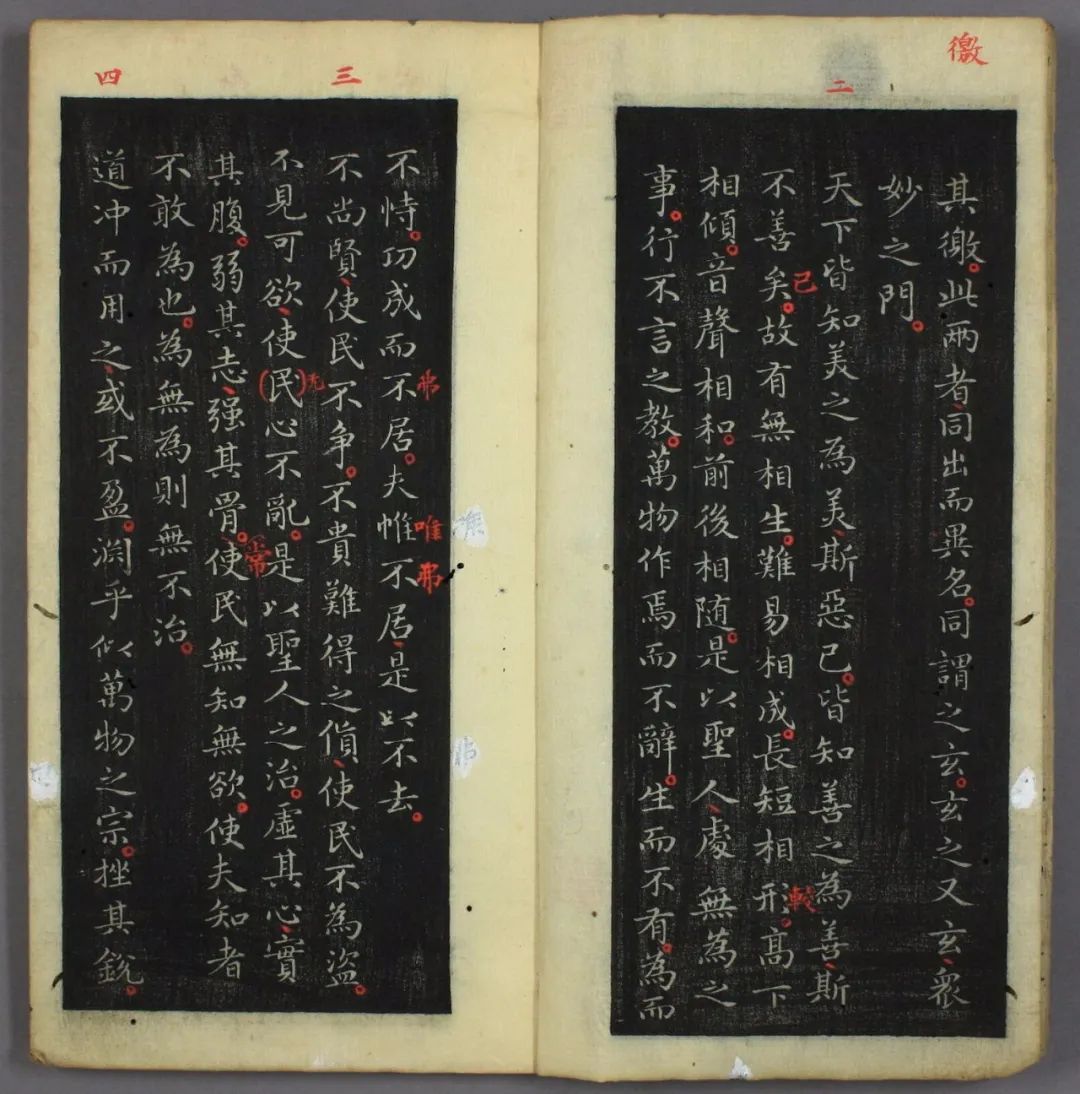 徼
二
其徼。此兩者、同出而異名。同謂之玄。玄之又玄、衆
妙之門。
天下皆知美之為美、斯惡已。皆知善之為善、斯
不善矣。故有無相生。難易相成。長短相形。高下
已
較
相傾。音聲相和。前後相随。是以聖人、處無為之
事。行不言之教。萬物作焉而不辭。生而不有。為而
三
四
不恃。功成而不居。夫惟不居、是以不去。
弗
唯
弗
不尚賢、使民不争。不貴難得之貨、使民不為盗。
不見可欲、使(民)心不亂。是以聖人之治。虛其心、實
无
其腹。弱其志、强其骨。使民無知無欲。使夫知者
常
不敢為也。為無為則無不治。
道冲而用之、或不盈。淵乎似萬物之宗。挫其銳。